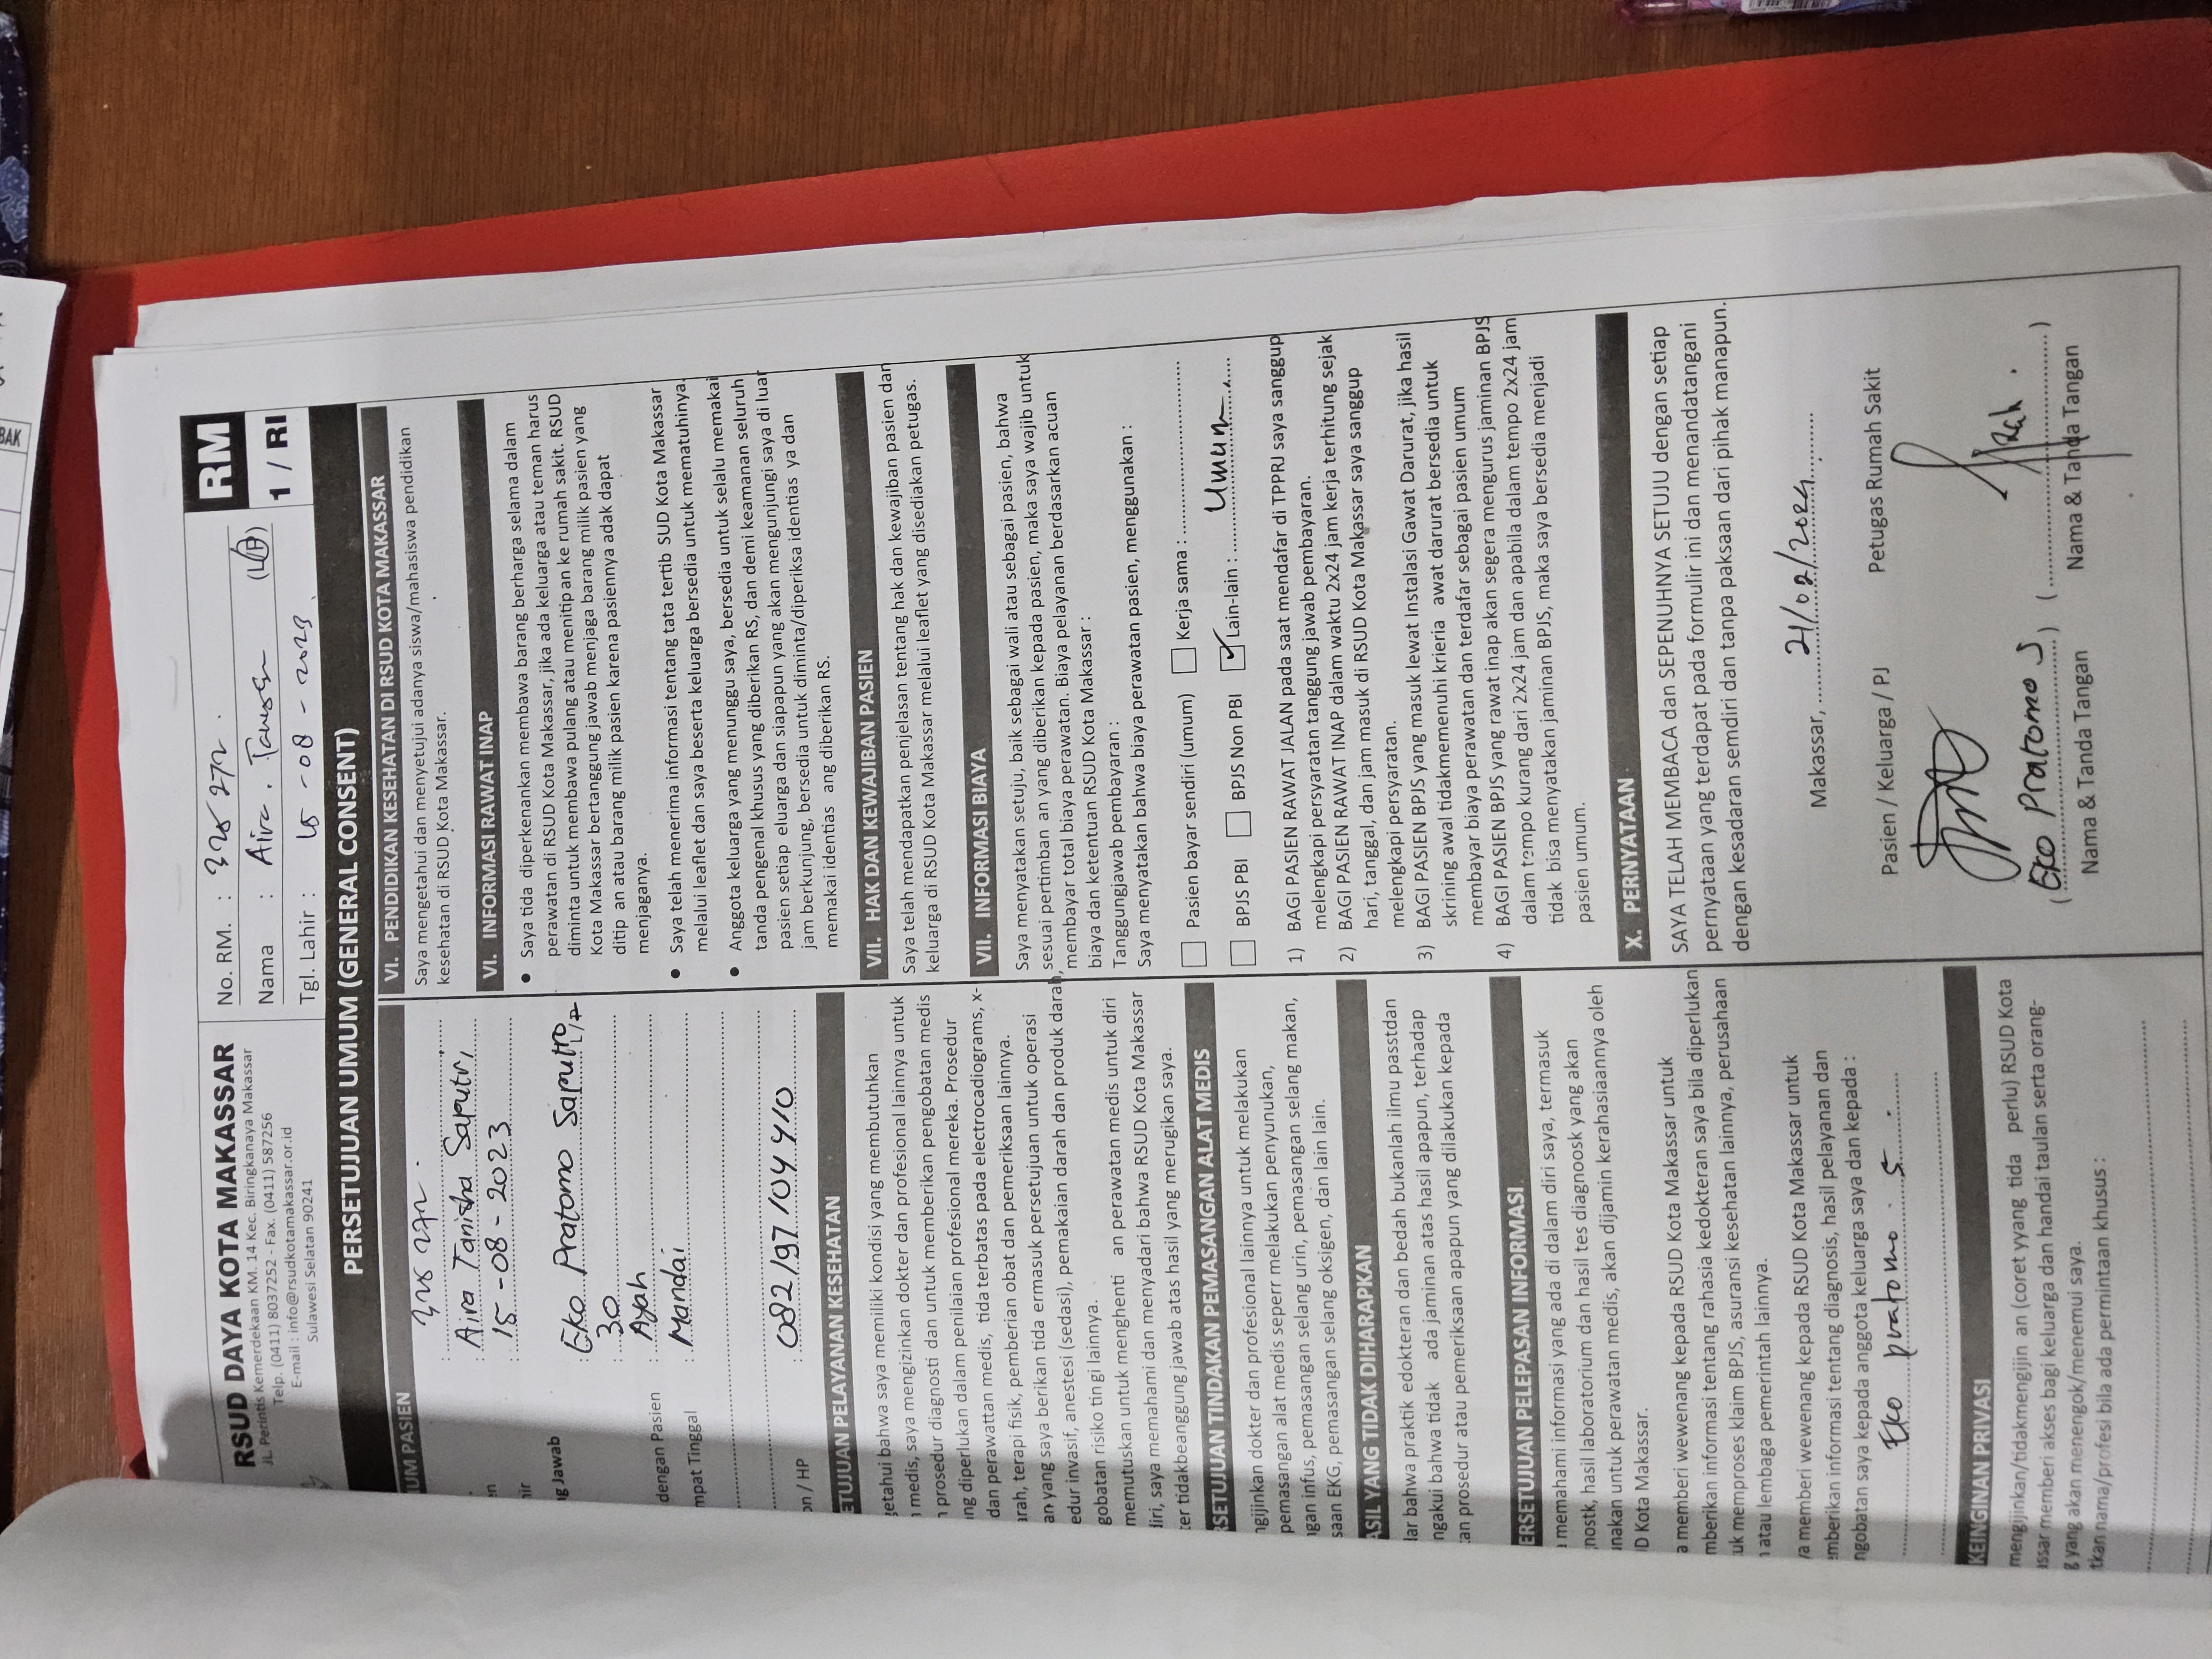 BAK
RSUD DAYA KOTA MAKASSAR
JL. Perintis Kemerdekaan KM. 14 Kec. Biringkanaya Makassar
Telp. (0411) 8037252 - Fax. (0411) 587256
E-mail : info@rsudkotamakassar.or.id
Sulawesi Selatan 90241
No. RM. : 328 272 .
Nama : Aira . (L/P)
Tgl. Lahir : 15 -08 - 2023
RM
1 / RI
PERSETUJUAN UMUM (GENERAL CONSENT)
UM PASIEN
: 328 272 .
en : Aira Tanisha Saputri
hir : 15 -08 - 2023
g Jawab
: Eko Pratomo Saputro L/P
: 30
dengan Pasien : Ayah
mpat Tinggal : Mandai
on / HP : 082197104410
ETUJUAN PELAYANAN KESEHATAN
getahui bahwa saya memiliki kondisi yang membutuhkan
n medis, saya mengizinkan dokter dan profesional lainnya untuk
n prosedur diagnosti dan untuk memberikan pengobatan medis
ng diperlukan dalam penilaian profesional mereka. Prosedur
dan perawattan medis, tida terbatas pada electrocadiograms, x-
arah, terapi fisik, pemberian obat dan pemeriksaan lainnya.
an yang saya berikan tida ermasuk persetujuan untuk operasi
edur invasif, anestesi (sedasi), pemakaian darah dan produk darah,
gobatan risiko tin gi lainnya.
memutuskan untuk menghenti an perawatan medis untuk diri
diri, saya memahami dan menyadari bahwa RSUD Kota Makassar
ter tidakbeanggung jawab atas hasil yang merugikan saya.
RSETUJUAN TINDAKAN PEMASANGAN ALAT MEDIS
ngijinkan dokter dan profesional lainnya untuk melakukan
pemasangan alat medis seperr melakukan penyunukan,
ngan infus, pemasangan selang urin, pemasangan selang makan,
saan EKG, pemasangan selang oksigen, dan lain lain.
ASIL YANG TIDAK DIHARAPKAN
dar bahwa praktik edokteran dan bedah bukanlah ilmu passtdan
ngakui bahwa tidak ada jaminan atas hasil apapun, terhadap
tan prosedur atau pemeriksaan apapun yang dilakukan kepada
ERSETUJUAN PELEPASAN INFORMASI
a memahami informasi yang ada di dalam diri saya, termasuk
nostk, hasil laboratorium dan hasil tes diagnoosk yang akan
unakan untuk perawatan medis, akan dijamin kerahasiaannya oleh
D Kota Makassar.
a memberi wewenang kepada RSUD Kota Makassar untuk
mberikan informasi tentang rahasia kedokteran saya bila diperlukan
uk memproses klaim BPJS, asuransi kesehatan lainnya, perusahaan
n atau lembaga pemerintah lainnya.
ya memberi wewenang kepada RSUD Kota Makassar untuk
emberikan informasi tentang diagnosis, hasil pelayanan dan
ngobatan saya kepada anggota keluarga saya dan kepada :
Eko pratomo . S .
KEINGINAN PRIVASI
mengijinkan/tidakmengijin an (coret yyang tida perlu) RSUD Kota
assar memberi akses bagi keluarga dan handai taulan serta orang-
g yang akan menengok/menemui saya.
tkan nama/profesi bila ada permintaan khusus :
VI. PENDIDIKAN KESEHATAN DI RSUD KOTA MAKASSAR
Saya mengetahui dan menyetujui adanya siswa/mahasiswa pendidikan
kesehatan di RSUD Kota Makassar.
VI. INFORMASI RAWAT INAP
• Saya tida diperkenankan membawa barang berharga selama dalam
perawatan di RSUD Kota Makassar, jika ada keluarga atau teman harus
diminta untuk membawa pulang atau menitip an ke rumah sakit. RSUD
Kota Makassar bertanggung jawab menjaga barang milik pasien yang
ditip an atau barang milik pasien karena pasiennya adak dapat
menjaganya.
• Saya telah menerima informasi tentang tata tertib SUD Kota Makassar
melalui leaflet dan saya beserta keluarga bersedia untuk mematuhinya.
• Anggota keluarga yang menunggu saya, bersedia untuk selalu memakai
tanda pengenal khusus yang diberikan RS, dan demi keamanan seluruh
pasien setiap eluarga dan siapapun yang akan mengunjungi saya di luar
jam berkunjung, bersedia untuk diminta/diperiksa identias ya dan
memakai identias ang diberikan RS.
VII. HAK DAN KEWAJIBAN PASIEN
Saya telah mendapatkan penjelasan tentang hak dan kewajiban pasien dan
keluarga di RSUD Kota Makassar melalui leaflet yang disediakan petugas.
VII. INFORMASI BIAYA
Saya menyatakan setuju, baik sebagai wali atau sebagai pasien, bahwa
sesuai pertimban an yang diberikan kepada pasien, maka saya wajib untuk
membayar total biaya perawatan. Biaya pelayanan berdasarkan acuan
biaya dan ketentuan RSUD Kota Makassar :
Tanggungjawab pembayaran :
Saya menyatakan bahwa biaya perawatan pasien, menggunakan :
Pasien bayar sendiri (umum) Kerja sama :
BPJS PBI BPJS Non PBI ✓ Lain-lain : Umum
1) BAGI PASIEN RAWAT JALAN pada saat mendafar di TPPRJ saya sanggup
melengkapi persyaratan tanggung jawab pembayaran.
2) BAGI PASIEN RAWAT INAP dalam waktu 2x24 jam kerja terhitung sejak
hari, tanggal, dan jam masuk di RSUD Kota Makassar saya sanggup
melengkapi persyaratan.
3) BAGI PASIEN BPJS yang masuk lewat Instalasi Gawat Darurat, jika hasil
skrining awal tidakmemenuhi krieria awat darurat bersedia untuk
membayar biaya perawatan dan terdafar sebagai pasien umum
4) BAGI PASIEN BPJS yang rawat inap akan segera mengurus jaminan BPJS
dalam tempo kurang dari 2x24 jam dan apabila dalam tempo 2x24 jam
tidak bisa menyatakan jaminan BPJS, maka saya bersedia menjadi
pasien umum.
X. PERNYATAAN
SAYA TELAH MEMBACA dan SEPENUHNYA SETUJU dengan setiap
pernyataan yang terdapat pada formulir ini dan menandatangani
dengan kesadaran semdiri dan tanpa paksaan dari pihak manapun.
Makassar, 21/02/2024
Pasien / Keluarga / PJ Petugas Rumah Sakit
(Eko Pratomo S) ( )
Nama & Tanda Tangan Nama & Tanda Tangan